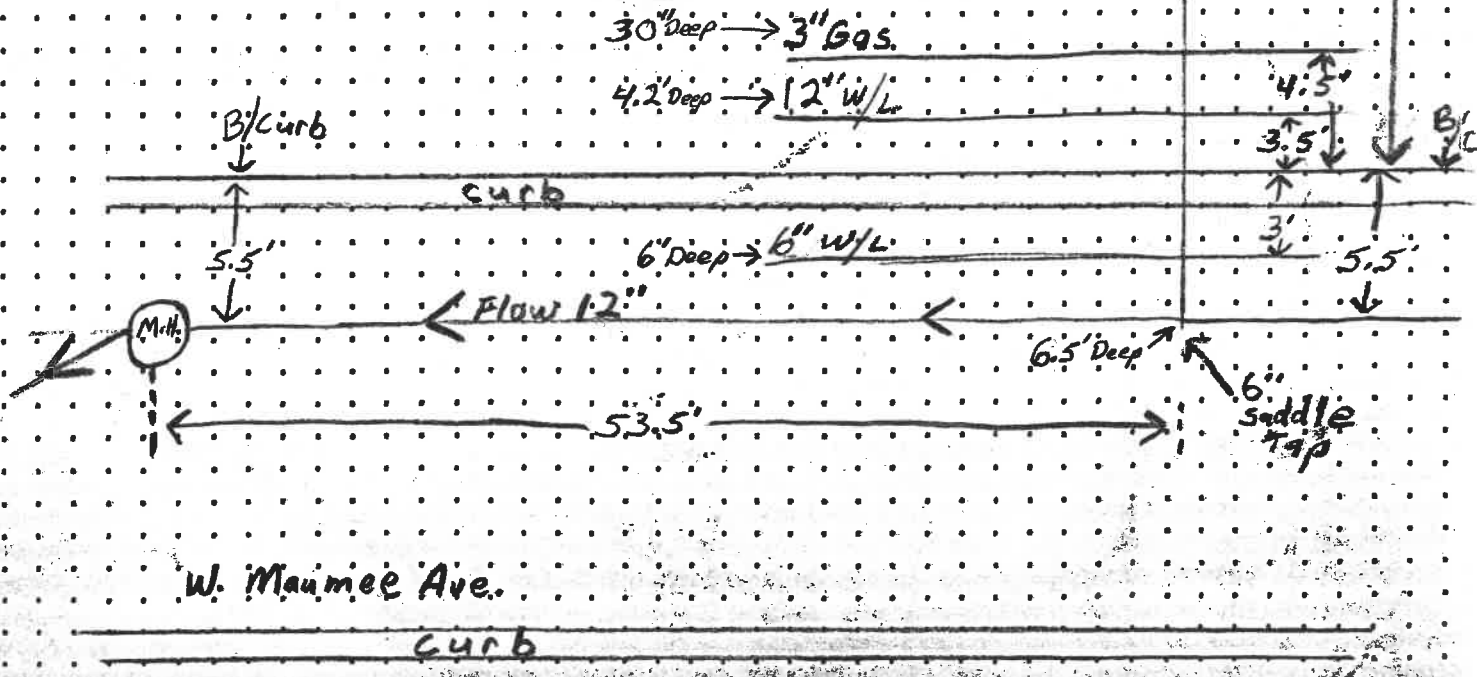 30" Deep → 3" Gas.
4.2' Deep → 12" W/L
4.5'
B/Curb
3.5'
B/C
curb
5.5'
6" Deep → 6" W/L
3'
5.5'
M.H.
Flow 12"
6.5' Deep
6"
saddle
Tap
53.5'
W. Maumee Ave.
curb